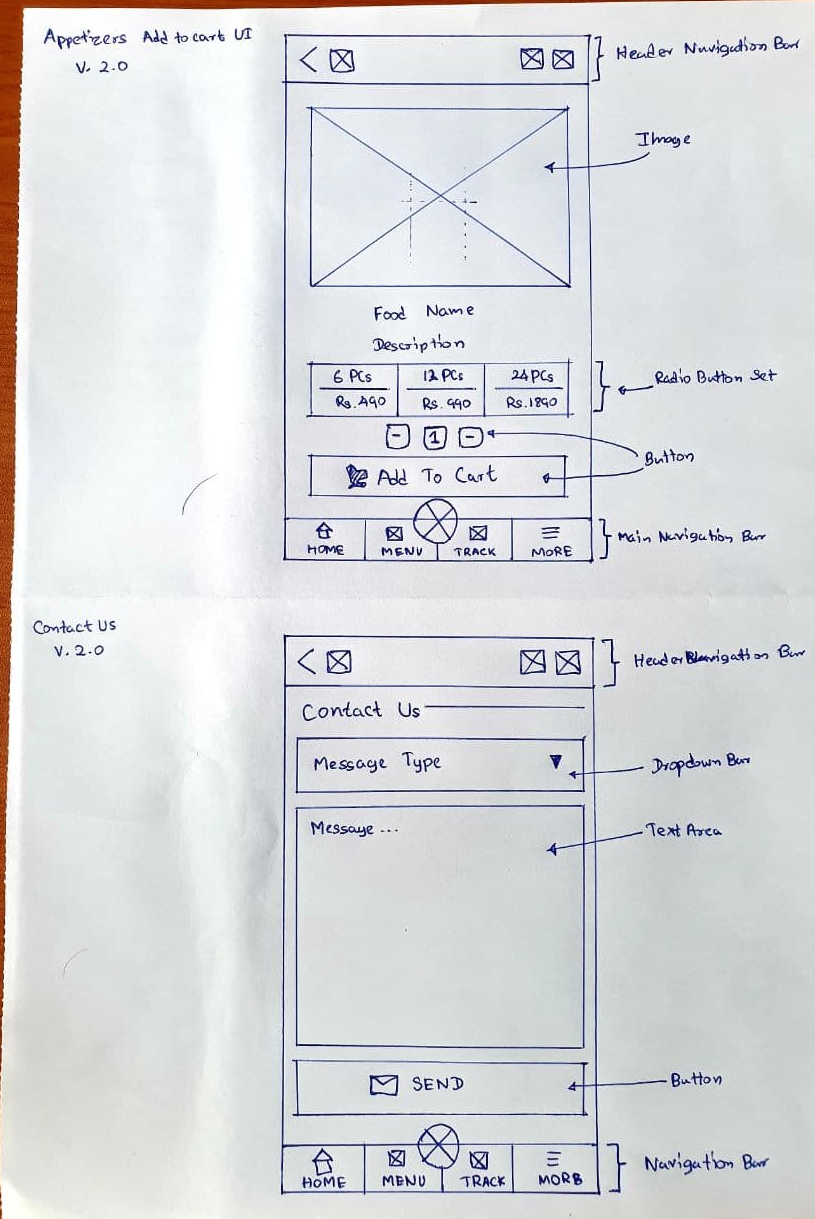 Appetizers Add to cart UI
V. 2.0
<
Header Navigation Bar
Image
Food Name
Description
6 PCs 12 PCs 24 PCs
Rs. 490 Rs. 990 Rs. 1890
Radio Button Set
- 1 -
Button
Add To Cart
HOME MENU TRACK MORE
Main Navigation Bar
Contact Us
V. 2.0
<
Header Navigation Bar
Contact Us
Message Type
Dropdown Bar
Message ...
Text Area
SEND
Button
HOME MENU TRACK MORE
Navigation Bar